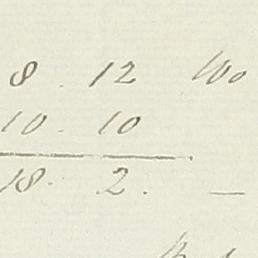 8 . 12
10 . 10
18 . 2 . —